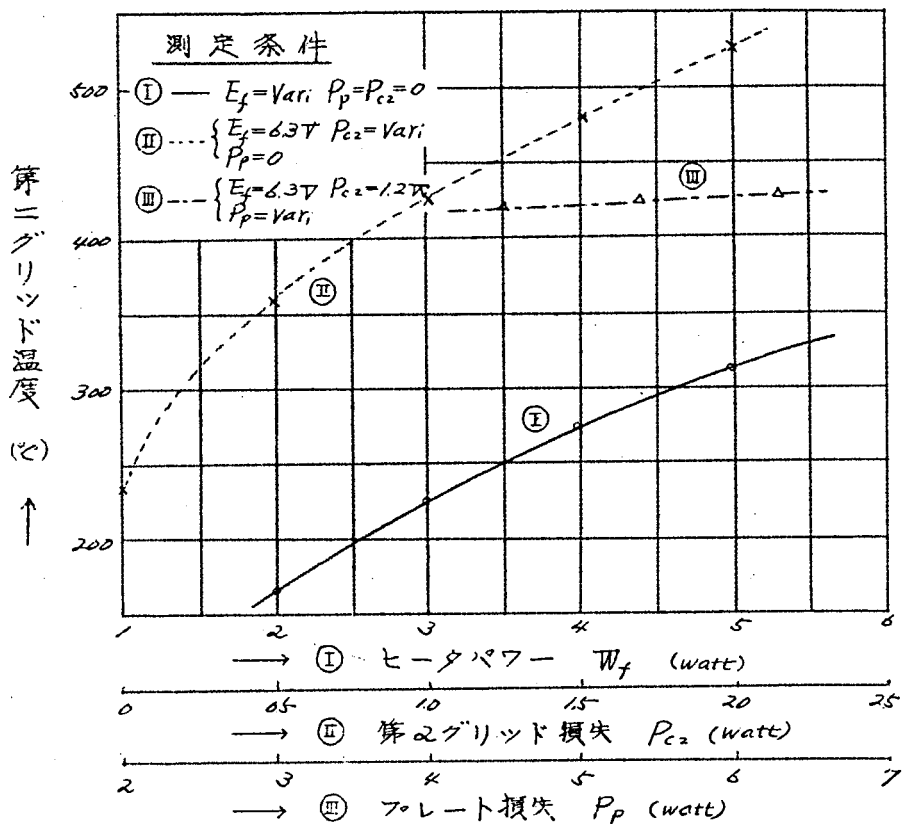 測定条件
Ⓘ — E_f=Vari P_p=P_c2=0
Ⅱ ---- { E_f=6.3V P_c2=Vari
P_p=0
Ⅲ —-— { E_f=6.3V P_c2=1.2W
P_p=Vari
500
400
300
200
第二グリッド温度 (℃) →
Ⅲ
Ⅱ
Ⅰ
1 2 3 4 5 6
→ Ⅰ ヒータパワー W_f (watt)
0 05 1.0 1.5 20 25
→ Ⅱ 第2グリッド損失 P_c2 (watt)
2 3 4 5 6 7
→ Ⅲ プレート損失 P_p (watt)